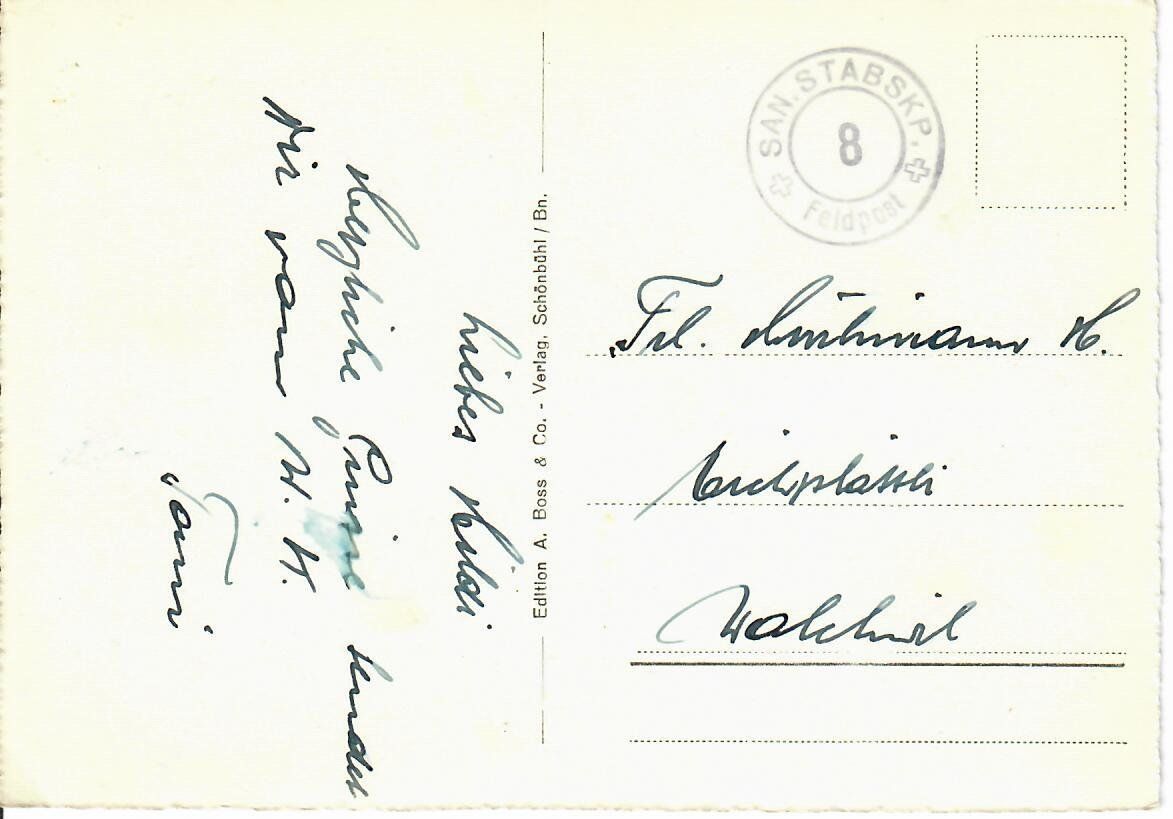 Liebes Hildi
Herzliche Grüsse sendet
Dir vom W. K.
Toni
Edition A. Boss & Co. - Verlag, Schönbühl / Bn.
SAN. STABSKP.
8
Feldpost
Frl. Hürlimann H.
Walchwil